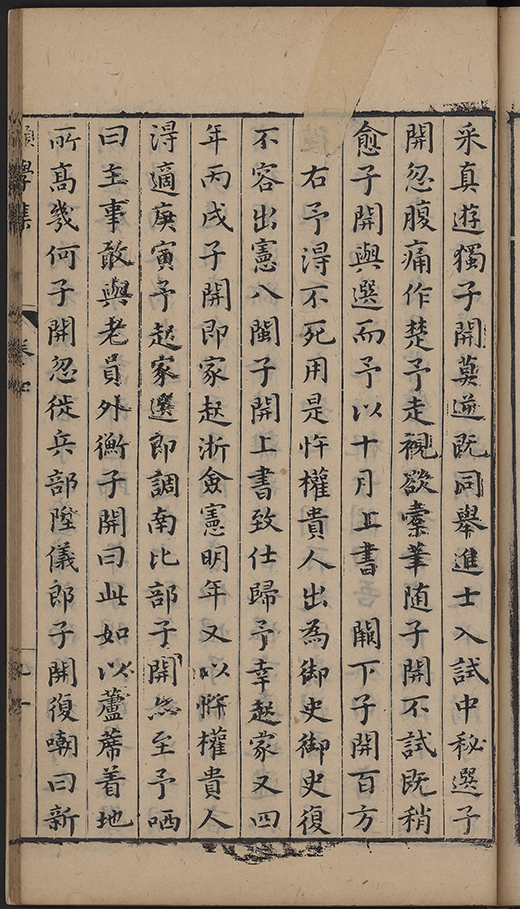 采真遊獨子開莫逆既同舉進士入試中秘選子
開忽腹痛作楚予走視欲橐筆随子開不試既稍
愈子開與選而予以十月上書　闕下子開百方
右予得不死用是忤權貴人出為御史御史復
不容出憲八閩子開上書致仕歸予幸起家又四
年丙戌子開即家起浙僉憲明年又以忤權貴人
得適庚寅予起家選即調南比部子開亦至予哂
曰主事敢與老員外衡子開曰此如以蘆蓆着地
所高幾何子開忽徙兵部陞儀郎子開復嘲曰新
願學集　卷四